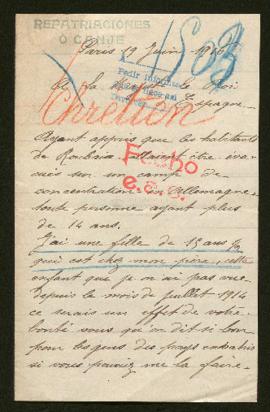 REPATRIACIONES
O CANJE
Paris 19 Juin 1916
A Sa Majesté le Roi
Espagne
Chrétien
Ayant appris que les habitants
de Roubaix allaient être éva-
cués sur un camp de
concentration en Allemagne
toute personne ayant plus
de 14 ans.
J'ai une fille de 15 ans
qui est chez mon père, cette
enfant que je n'ai pas vue
depuis le mois de Juillet 1914
ce serais un effet de votre
bonté vous qu'on dit si bon
pour les gens des pays envahis
si vous pouviez me la faire